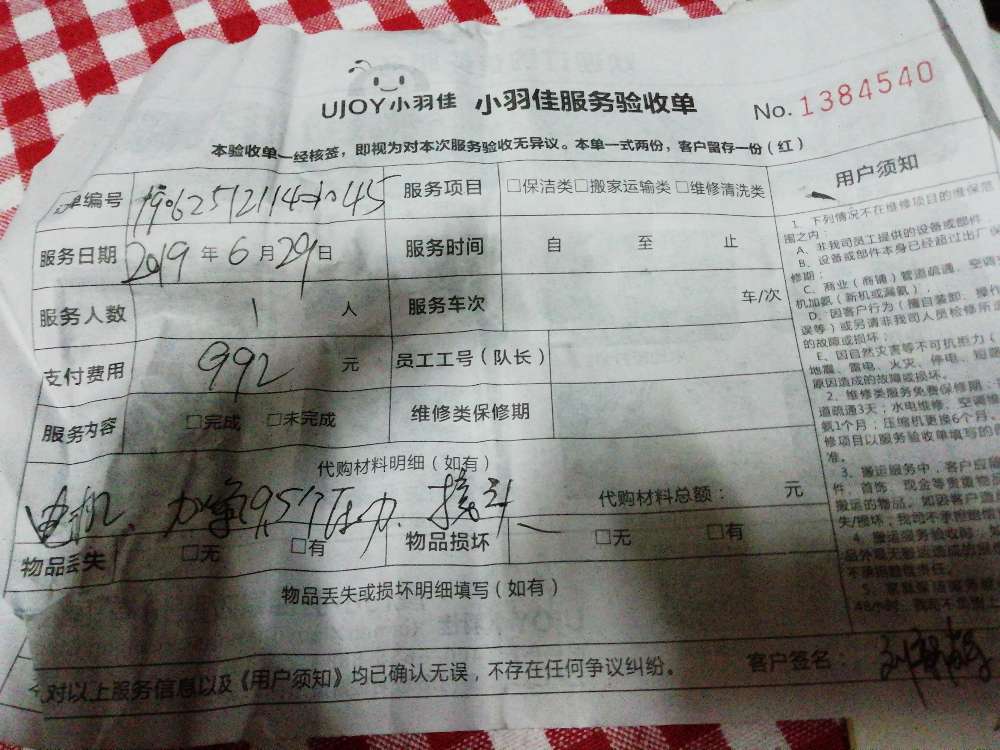 UJOY小羽佳 小羽佳服务验收单 No.1384540
本验收单一经核签，即视为对本次服务验收无异议。本单一式两份，客户留存一份（红）
单编号 服务项目 □保洁类□搬家运输类□维修清洗类
服务日期 2019年6月29日 服务时间 自 至 止
服务人数 1人 服务车次 车/次
支付费用 992元 员工工号（队长）
服务内容 □完成 □未完成 维修类保修期
代购材料明细（如有）
电机、加 压力、接 代购材料总额： 元
物品丢失 □无 □有 物品损坏 □无 □有
物品丢失或损坏明细填写（如有）
对以上服务信息以及《用户须知》均已确认无误，不存在任何争议纠纷。 客户签名：
用户须知
1、下列情况不在维修项目的维保范
围之内：
A、非我司员工提供的设备或部件
B、设备或部件本身已经超过出厂保
修期；
C、商业（商铺）管道疏通、空调
机加氨（新机或漏氨）
D、因客户行为（擅自装卸、操作
误等）或另请非我司人员检修所
的故障或损坏；
E、因自然灾害等不可抗拒力（
地震、雷电、火灾、停电、短路
原因造成的故障或损坏。
2、维修类服务免费保修期：
道疏通3天；水电维修、空调维
氨1个月；压缩机更换6个月、
修项目以服务验收单填写的
准。
3、搬运服务中，客户应留
件、首饰、现金等贵重物品
搬运的物品。如因客户造
失/损坏，我司不承担赔偿
4、搬运服务验收时，
品外观无搬运造成的
不承担赔偿责任。
5、家庭保洁服务
48小时，我司不